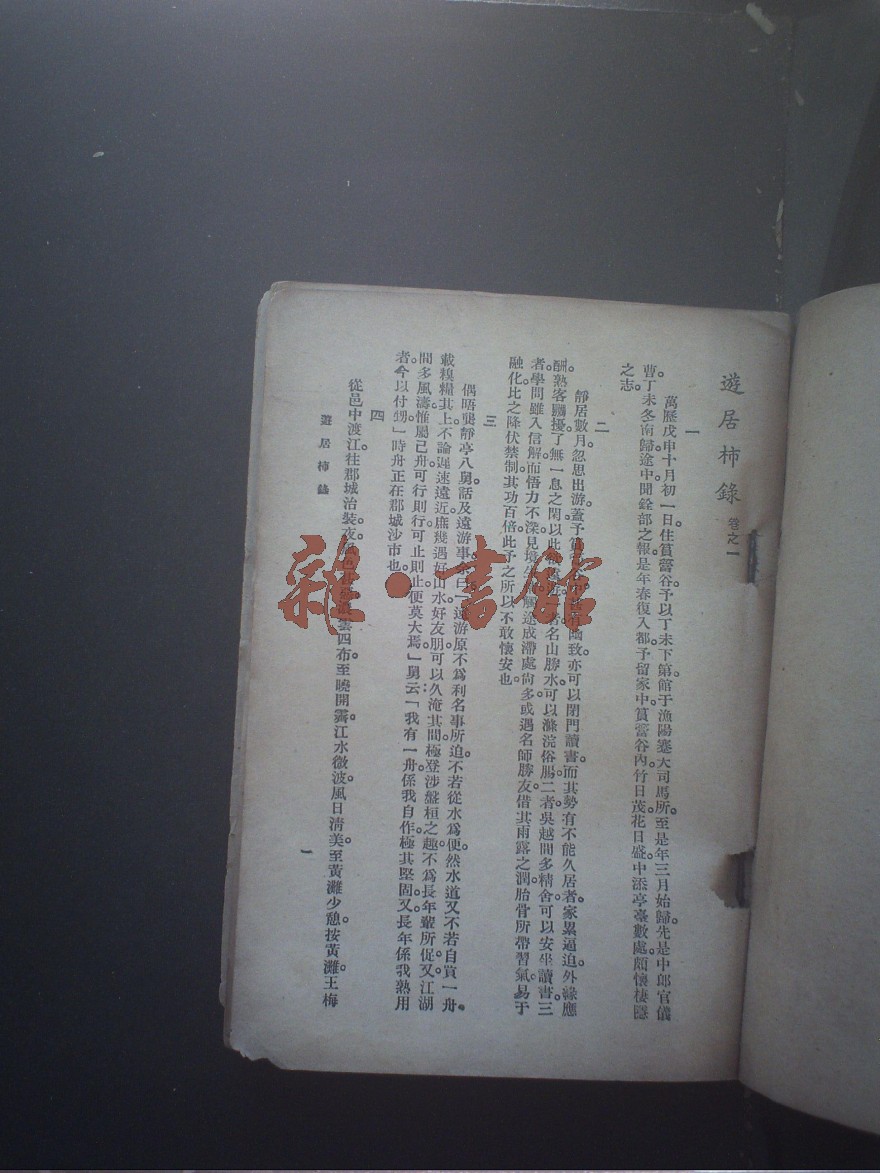 遊居柿錄 卷之一
一
萬歷戊申十月初一日。住篔簹谷。予以丁未下第。館于漁陽蹇大司馬所。至是年三月始歸。先是中郎官儀
曹。丁未冬南歸。途中聞銓部之報。是年春復入都。予留家中。篔簹谷內。竹日茂。花日盛。中添亭臺數處。頗懷棲隱
之志。
二
靜居數月。忽思出游。蓋予篔簹谷中。亦可以閉門讀書。而其勢有不能久居者。家累逼迫。外緣應
酬。熟客嬲擾。了無一息之閑。以此者名山勝水。可以滌浣俗腸。二者吳越間多精舍。可以安坐讀書。三
者學問雖入信解。而悟力不深。見境生。途成滯處尚多。或遇名師勝友。借其雨露之潤。胎骨所帶習氣。易于
融化。比之降伏禁制。其功百倍。此予之所以不敢懷安也。
三
偶晤龔靜亭八舅。話及遠游事。曰。「遠游原不爲利名事所迫。不若從水爲便。然水道又不若自買一舟。
載糗糧其上。不論遲速遠近。庶幾遇好山水好友朋。可以久淹其間。極登涉盤桓之趣。不爲長年輩所促。又江湖
間多風濤。惟屬己舟。可行則行。可止則止。便莫大焉。」舅云。「我有一舟。係我自作。極其堅固。又長年係我熟用
者。今以付甥。」時舟正在郡城沙市也。
四
從邑中渡江。往郡城治裝。夜雲四布。至曉開霽。江水微波。風日淸美。至黃灘少憩。按黃灘王梅
遊居柿錄
一
雜·書館